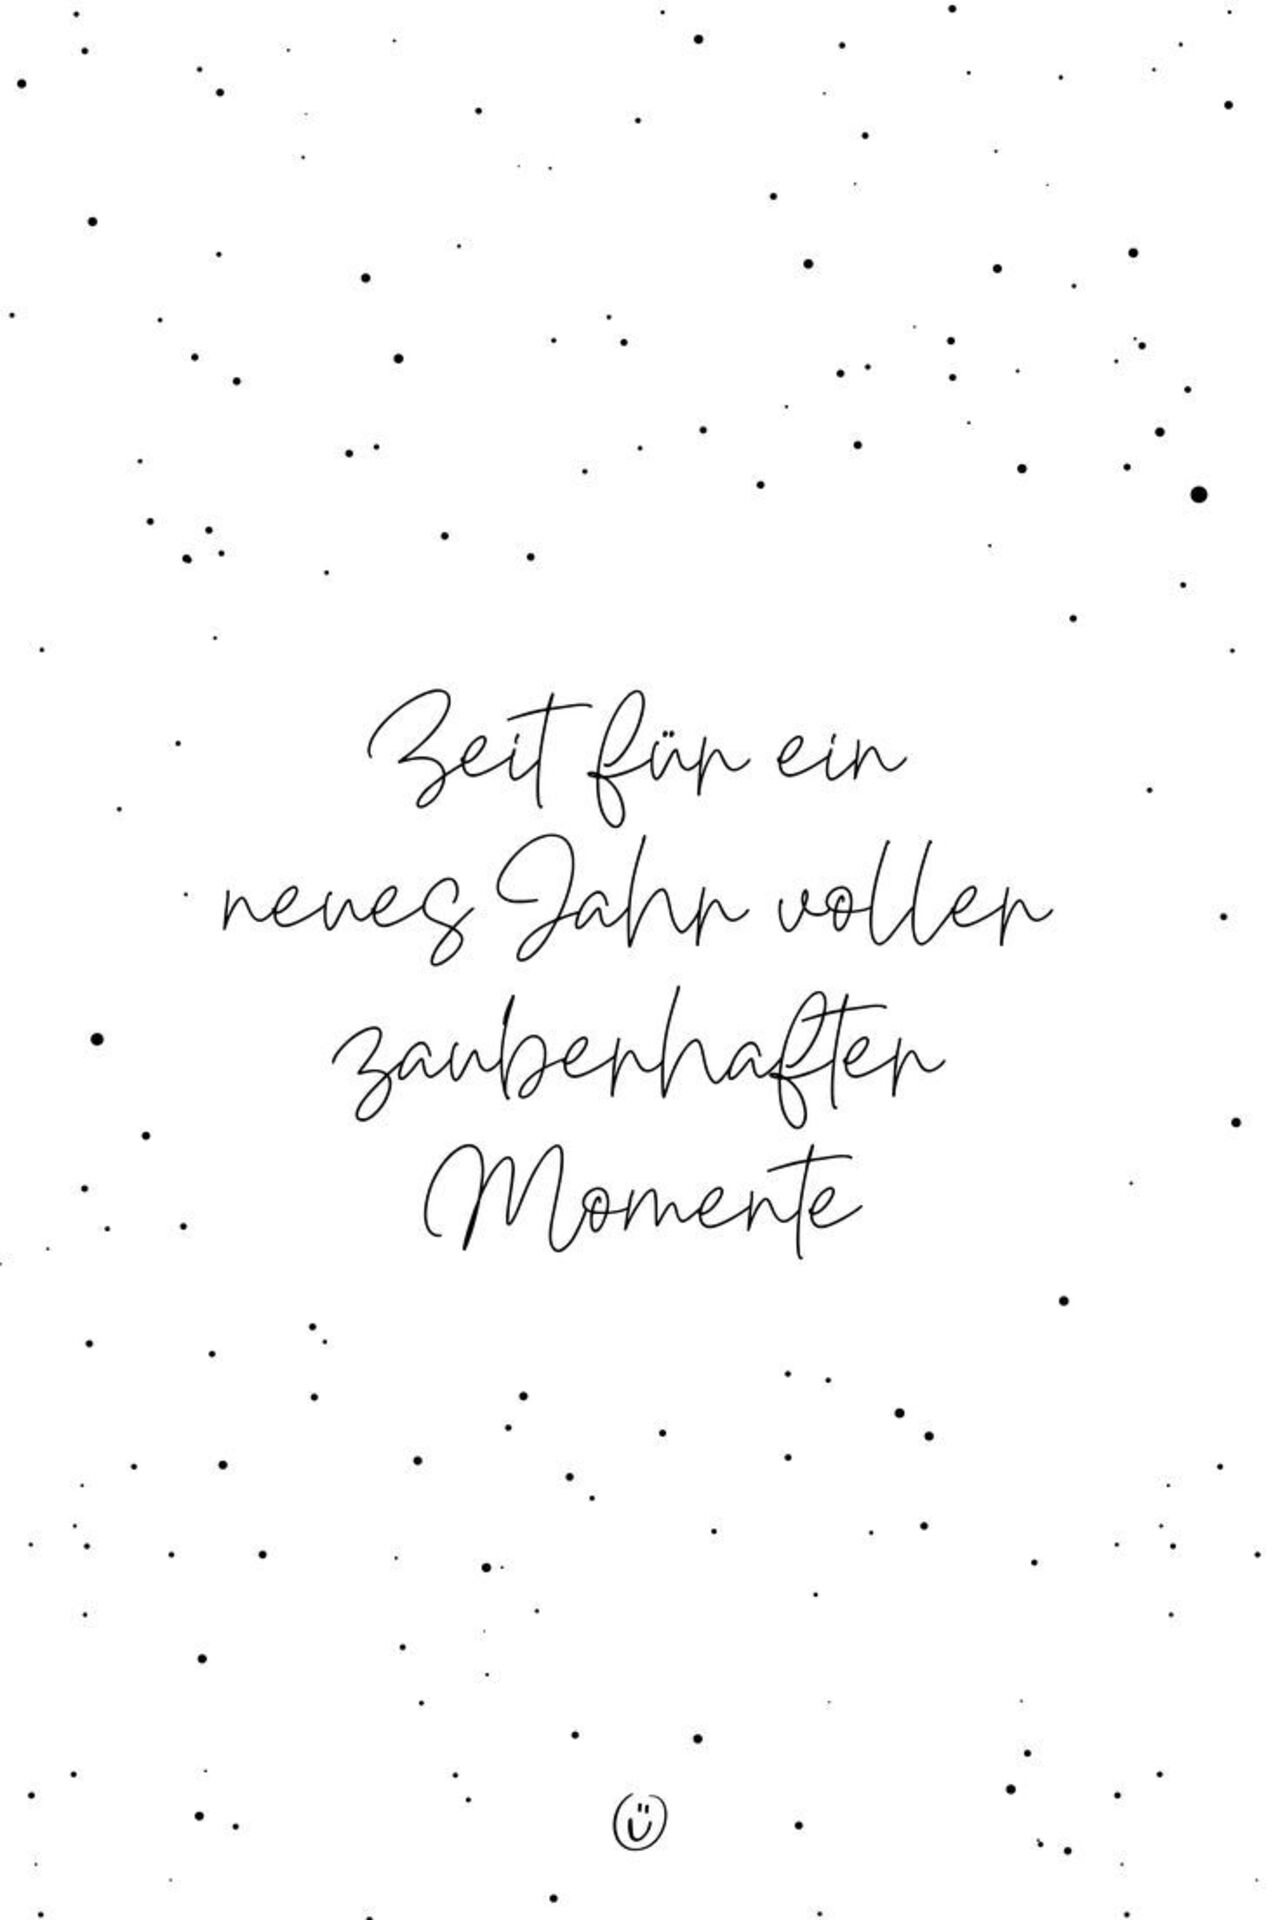 Zeit für ein
neues Jahr voller
zauberhafter
Momente